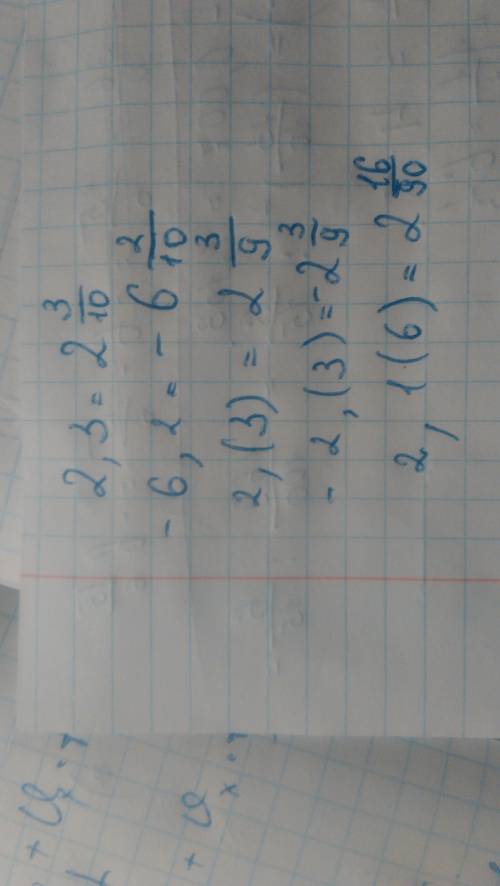 2,3 = 2 3/10
- 6,2 = - 6 2/10
2,(3) = 2 3/9
- 2,(3) = - 2 3/9
2,1(6) = 2 16/90